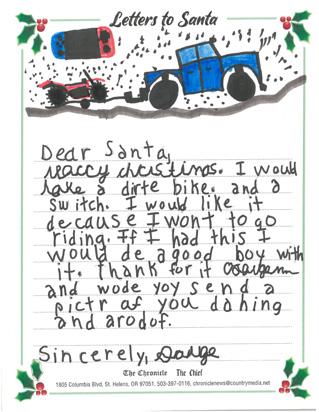 Letters to Santa
Dear Santa,
Maccy christmas. I would
lake a dirte bike. and a
switch. I would like it
decause I wont to go
riding. If I had this I
would be a good boy with
it. thank for it
and wode yoy send a
pictr af you dahing
and arodof.
Sincerely,
The Chronicle The Chief
1805 Columbia Blvd, St. Helens, OR 97051, 503-397-0116, chroniclenews@countrymedia.net